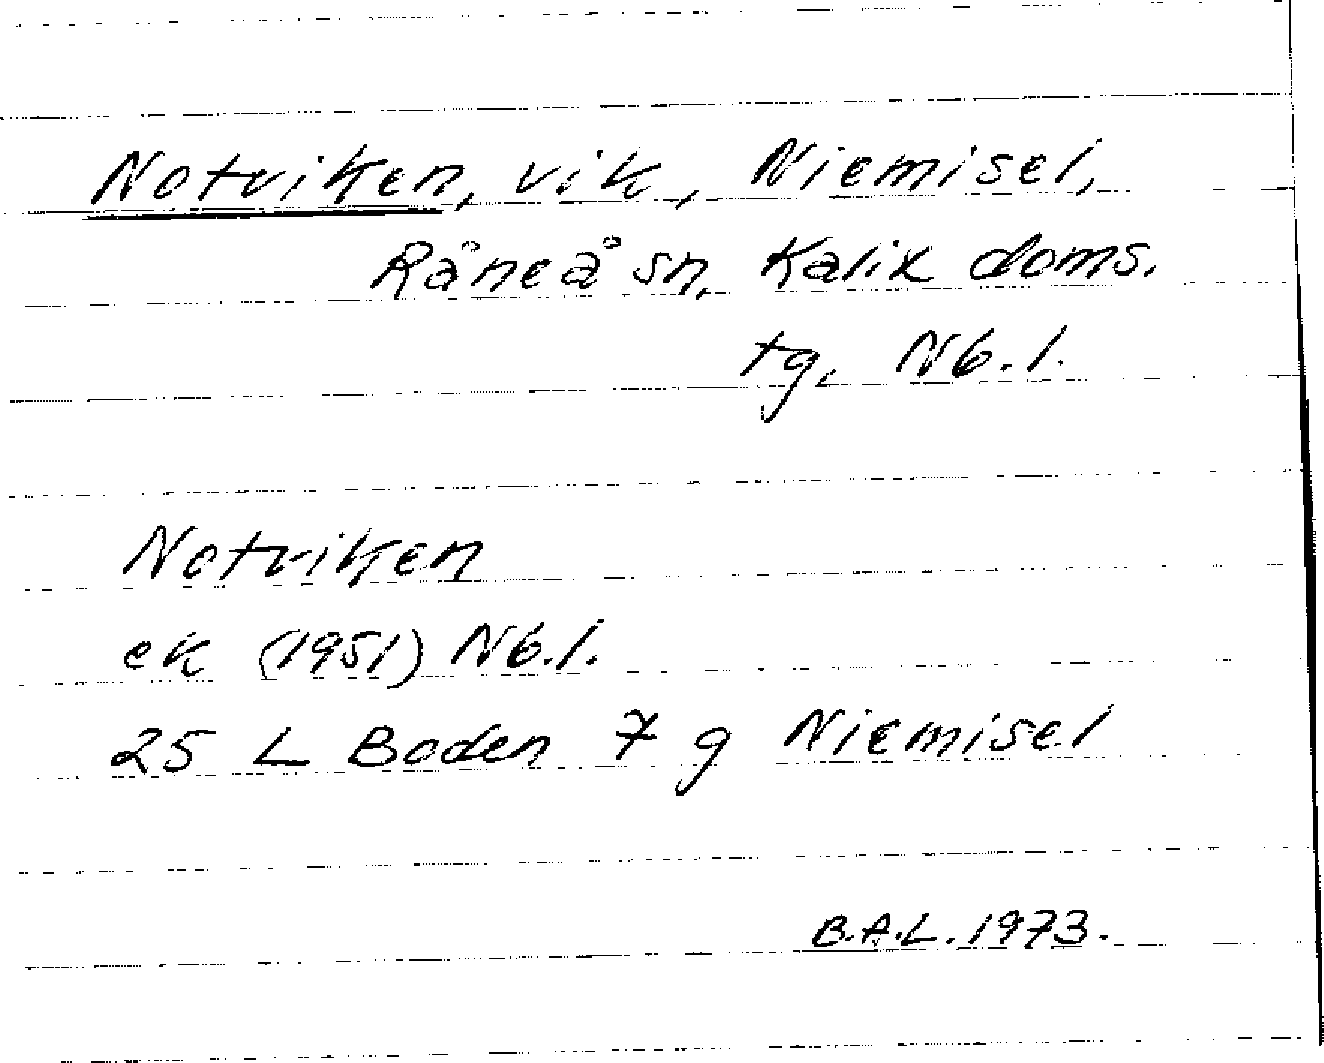 Notviken, vik, Niemisel,
Råneå sn, Kalix doms.
tg, Nb.l.
Notviken
ek (1951) Nb.l.
25 L Boden 7 g Niemisel
B.A.L. 1973.